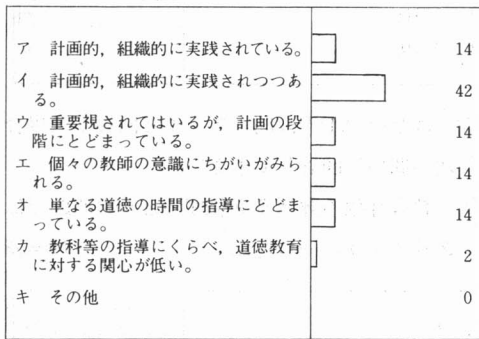 ア 計画的，組織的に実践されている。 14
イ 計画的，組織的に実践されつつあ 42
る。
ウ 重要視されてはいるが，計画の段 14
階にとどまっている。
エ 個々の教師の意識にちがいがみら 14
れる。
オ 単なる道徳の時間の指導にとどま 14
っている。
カ 教科等の指導にくらべ，道徳教育 2
に対する関心が低い。
キ その他 0